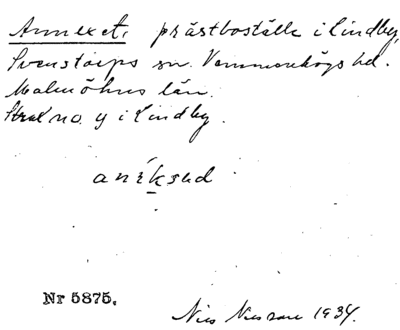 Annexet, prästboställe i Lindby,
Svenstorps sn. Vemmenhögs hd.
Malmöhus län.
Skat no. 4 i Lindby.
anĭksəd
Nr 5875.
Nils Nilsson 1934.